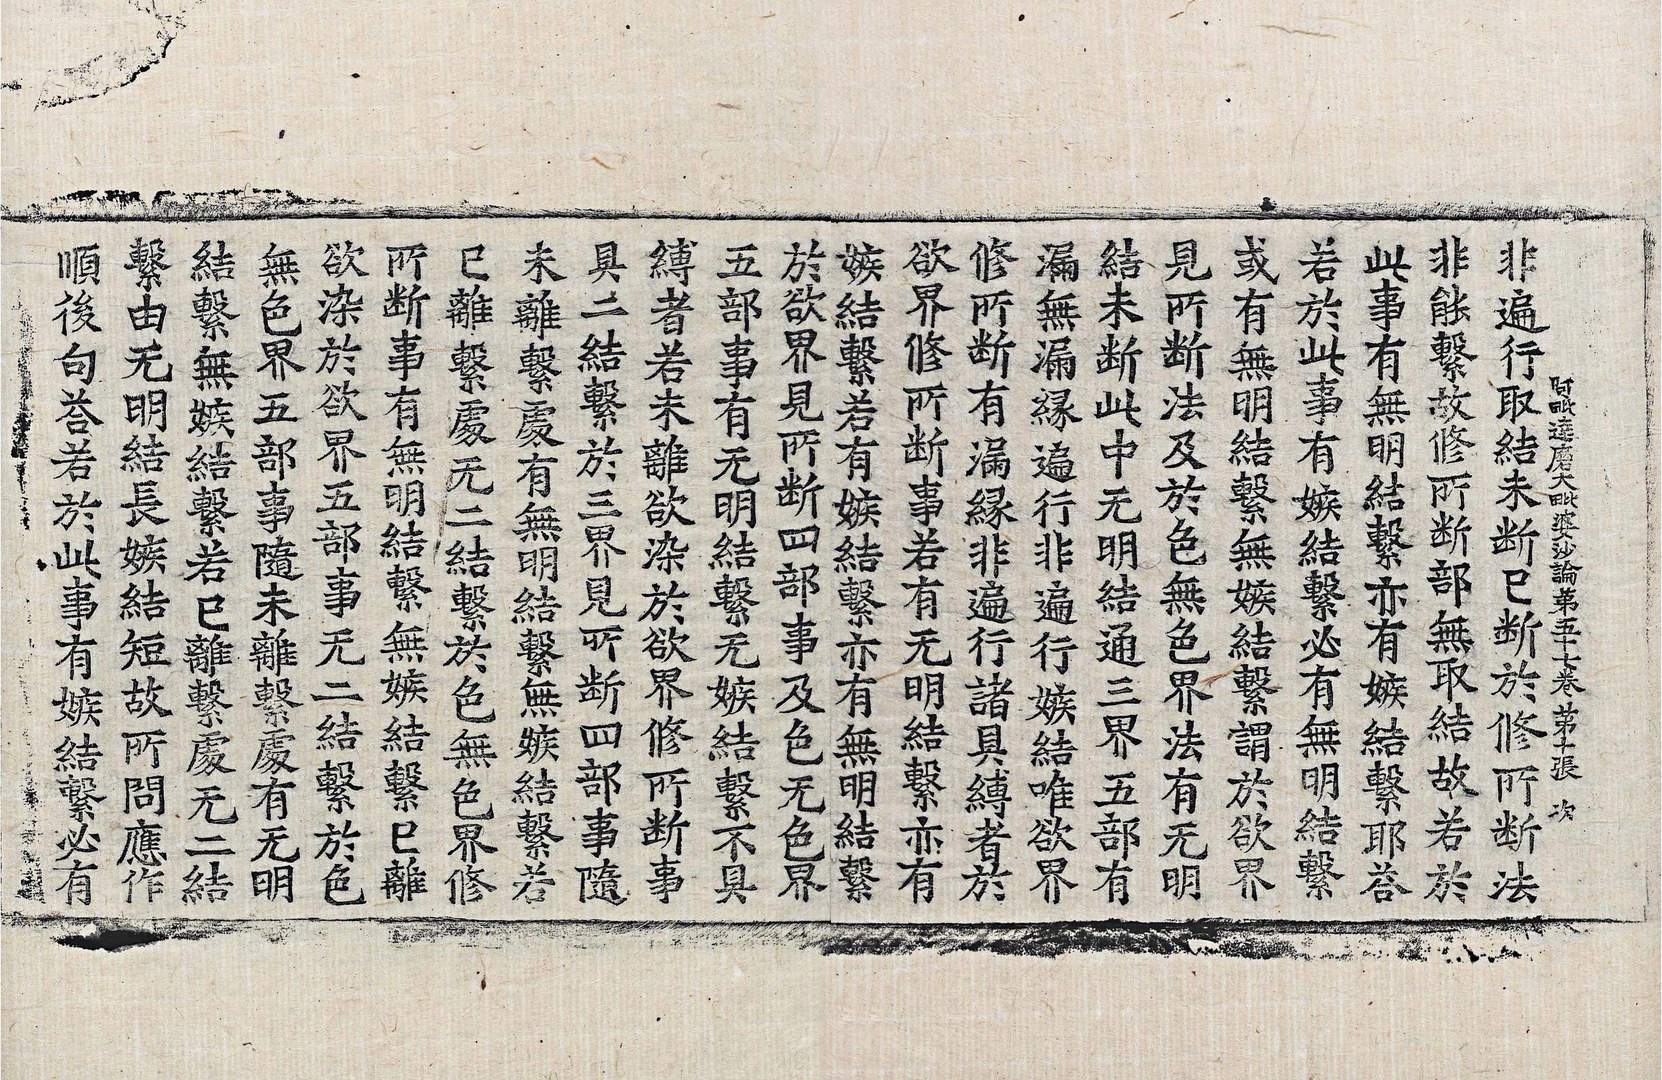 阿毗達磨大毗婆沙論第五十七卷 第十張 次
非遍行取結未断已断於修所断法
非能繫故修所断部無取結故若於
此事有無明結繫亦有嫉結繫耶荅
若於此事有嫉結繫必有無明結繫
或有無明結繫無嫉結繫謂於欲界
見所断法及於色無色界法有无明
結未断此中无明結通三界五部有
漏無漏緣遍行非遍行嫉結唯欲界
修所断有漏緣非遍行諸具縛者於
欲界修所断事若有无明結繫亦有
嫉結繫若有嫉結繫亦有無明結繫
於欲界見所断四部事及色无色界
五部事有无明結繫无嫉結繫不具
縛者若未離欲染於欲界修所断事
具二結繫於三界見所断四部事隨
未離繫處有無明結繫無嫉結繫若
已離繫處无二結繫於色無色界修
所断事有無明結繫無嫉結繫已離
欲染於欲界五部事无二結繫於色
無色界五部事隨未離繫處有无明
結繫無嫉結繫若已離繫處无二結
繫由无明結長嫉結短故所問應作
順後句荅若於此事有嫉結繫必有